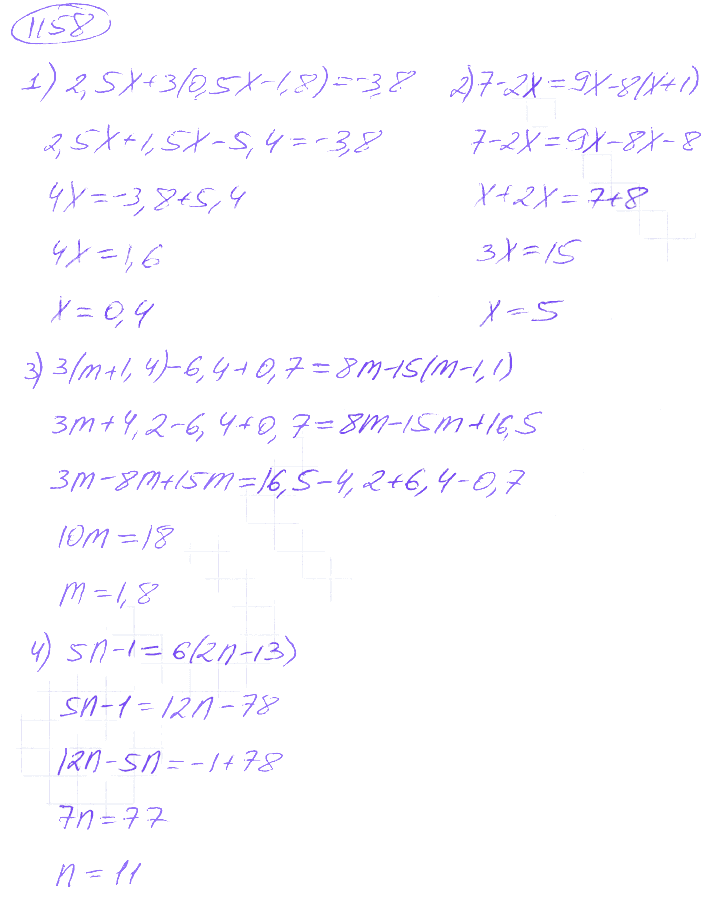 1158
1) 2,5x+3(0,5x-1,8)=-3,8
2,5x+1,5x-5,4=-3,8
4x=-3,8+5,4
4x=1,6
x=0,4
2) 7-2x=9x-8(x+1)
7-2x=9x-8x-8
x+2x=7+8
3x=15
x=5
3) 3(m+1,4)-6,4+0,7=8m-15(m-1,1)
3m+4,2-6,4+0,7=8m-15m+16,5
3m-8m+15m=16,5-4,2+6,4-0,7
10m=18
m=1,8
4) 5n-1=6(2n-13)
5n-1=12n-78
12n-5n=-1+78
7n=77
n=11